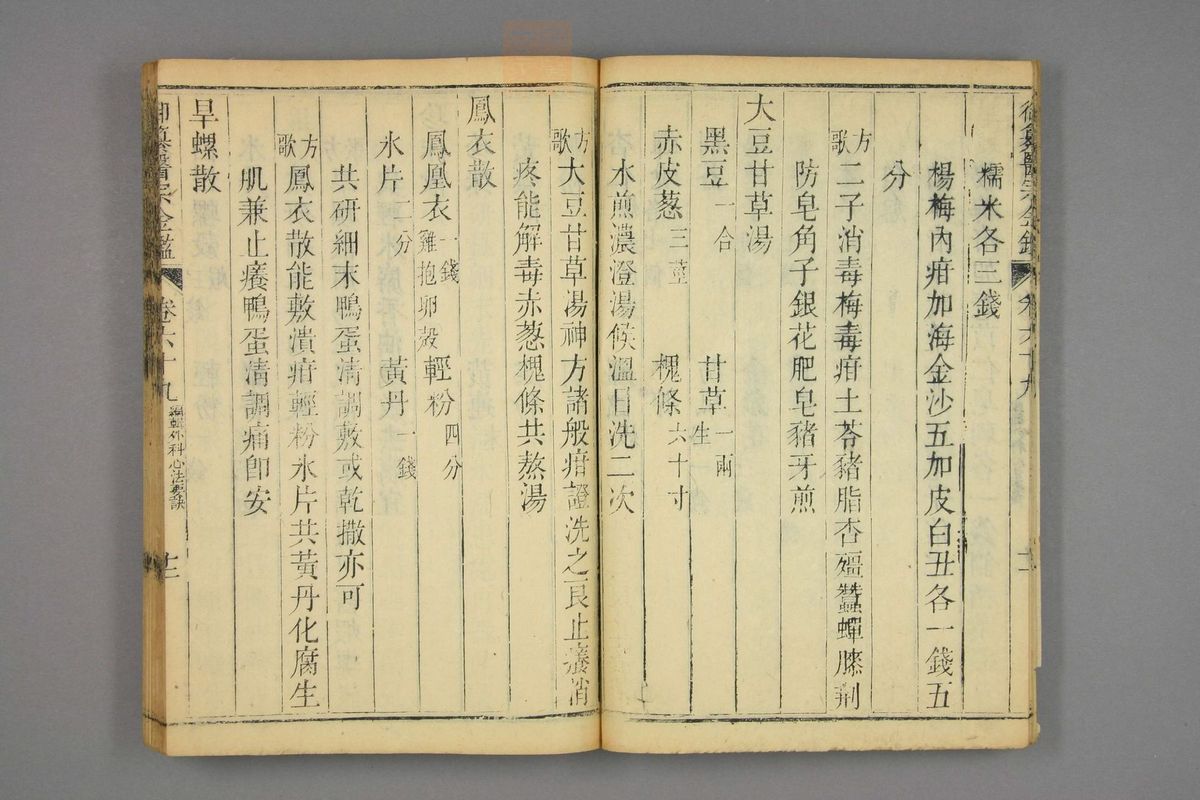 御纂醫宗金鑑 卷六十九 十二
糯米各三錢
楊梅內疳加海金沙五加皮白丑各一錢五
分
方歌 二子消毒梅毒疳土苓豬脂杏殭蠶蟬膝荆
防皂角子銀花肥皂豬牙煎
大豆甘草湯
黑豆一合 甘草一兩生
赤皮葱三莖 槐條六十寸
水煎濃澄湯候溫日洗二次
方歌 大豆甘草湯神方諸般疳證洗之良止癢消
疼能解毒赤葱槐條共熬湯
鳳衣散
鳳凰衣一錢雞抱卵殼 輕粉四分
氷片二分 黃丹一錢
共研細末鴨蛋清調敷或乾撒亦可
方歌 鳳衣散能敷潰疳輕粉氷片共黃丹化腐生
肌兼止癢鴨蛋清調痛即安
旱螺散
御纂醫宗金鑑 卷六十九 編輯外科心法要訣 十二